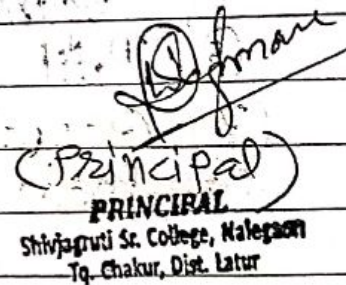 (Principal)
PRINCIPAL
Shivjagruti Sr. College, Nalegaon
Tq. Chakur, Dist. Latur